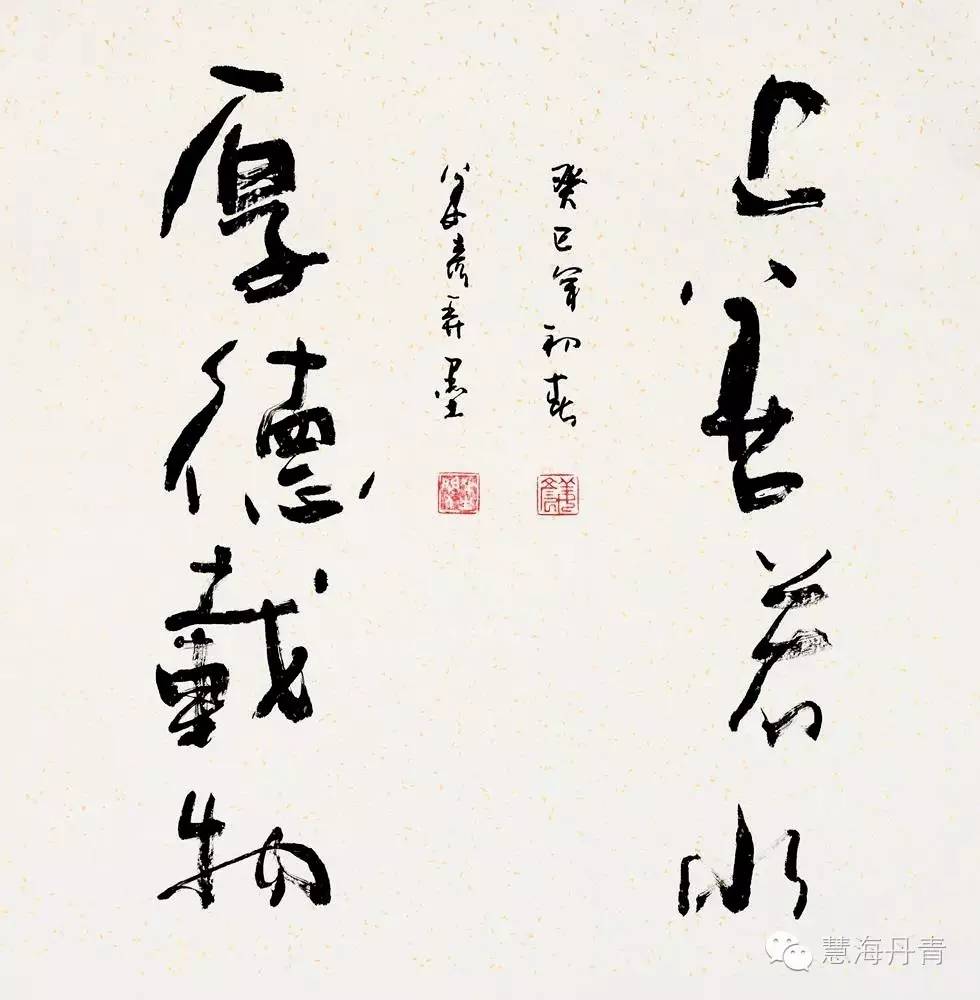 上善若水
癸巳年初春
弄墨
厚德载物
慧海丹青